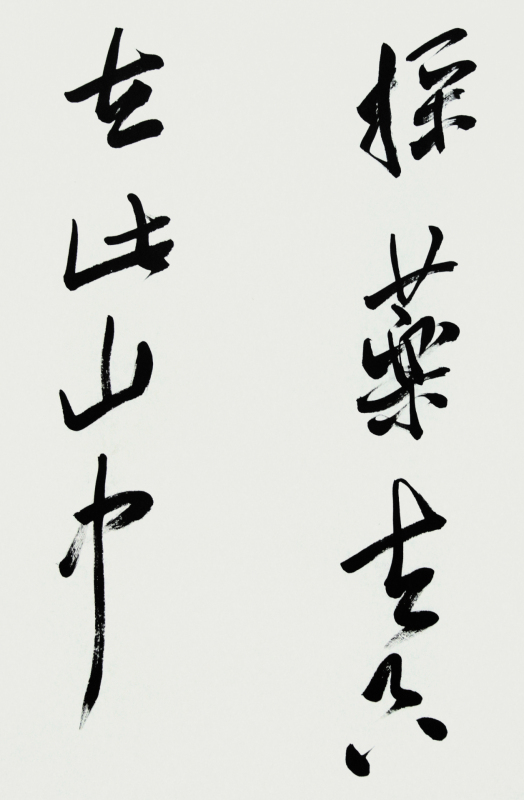 採藥去只
在此山中